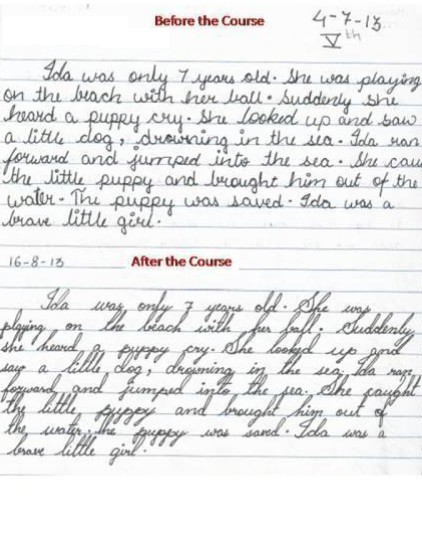 Before the Course
4-7-13
Vth
Ida was only 7 years old. She was playing
on the beach with her ball. Suddenly she
heard a puppy cry. She looked up and saw
a little dog, drowning in the sea. Ida ran
forward and jumped into the sea. She cau
the little puppy and brought him out of the
water. The puppy was saved. Ida was a
brave little girl.
16-8-13
After the Course
Ida was only 7 years old. She was
playing on the beach with her ball. Suddenly
she heard a puppy cry. She looked up and
saw a little dog, drowning in the sea. Ida ran
forward and jumped into the sea. She caught
the little puppy and brought him out of
the water. the puppy was saved. Ida was a
brave little girl.